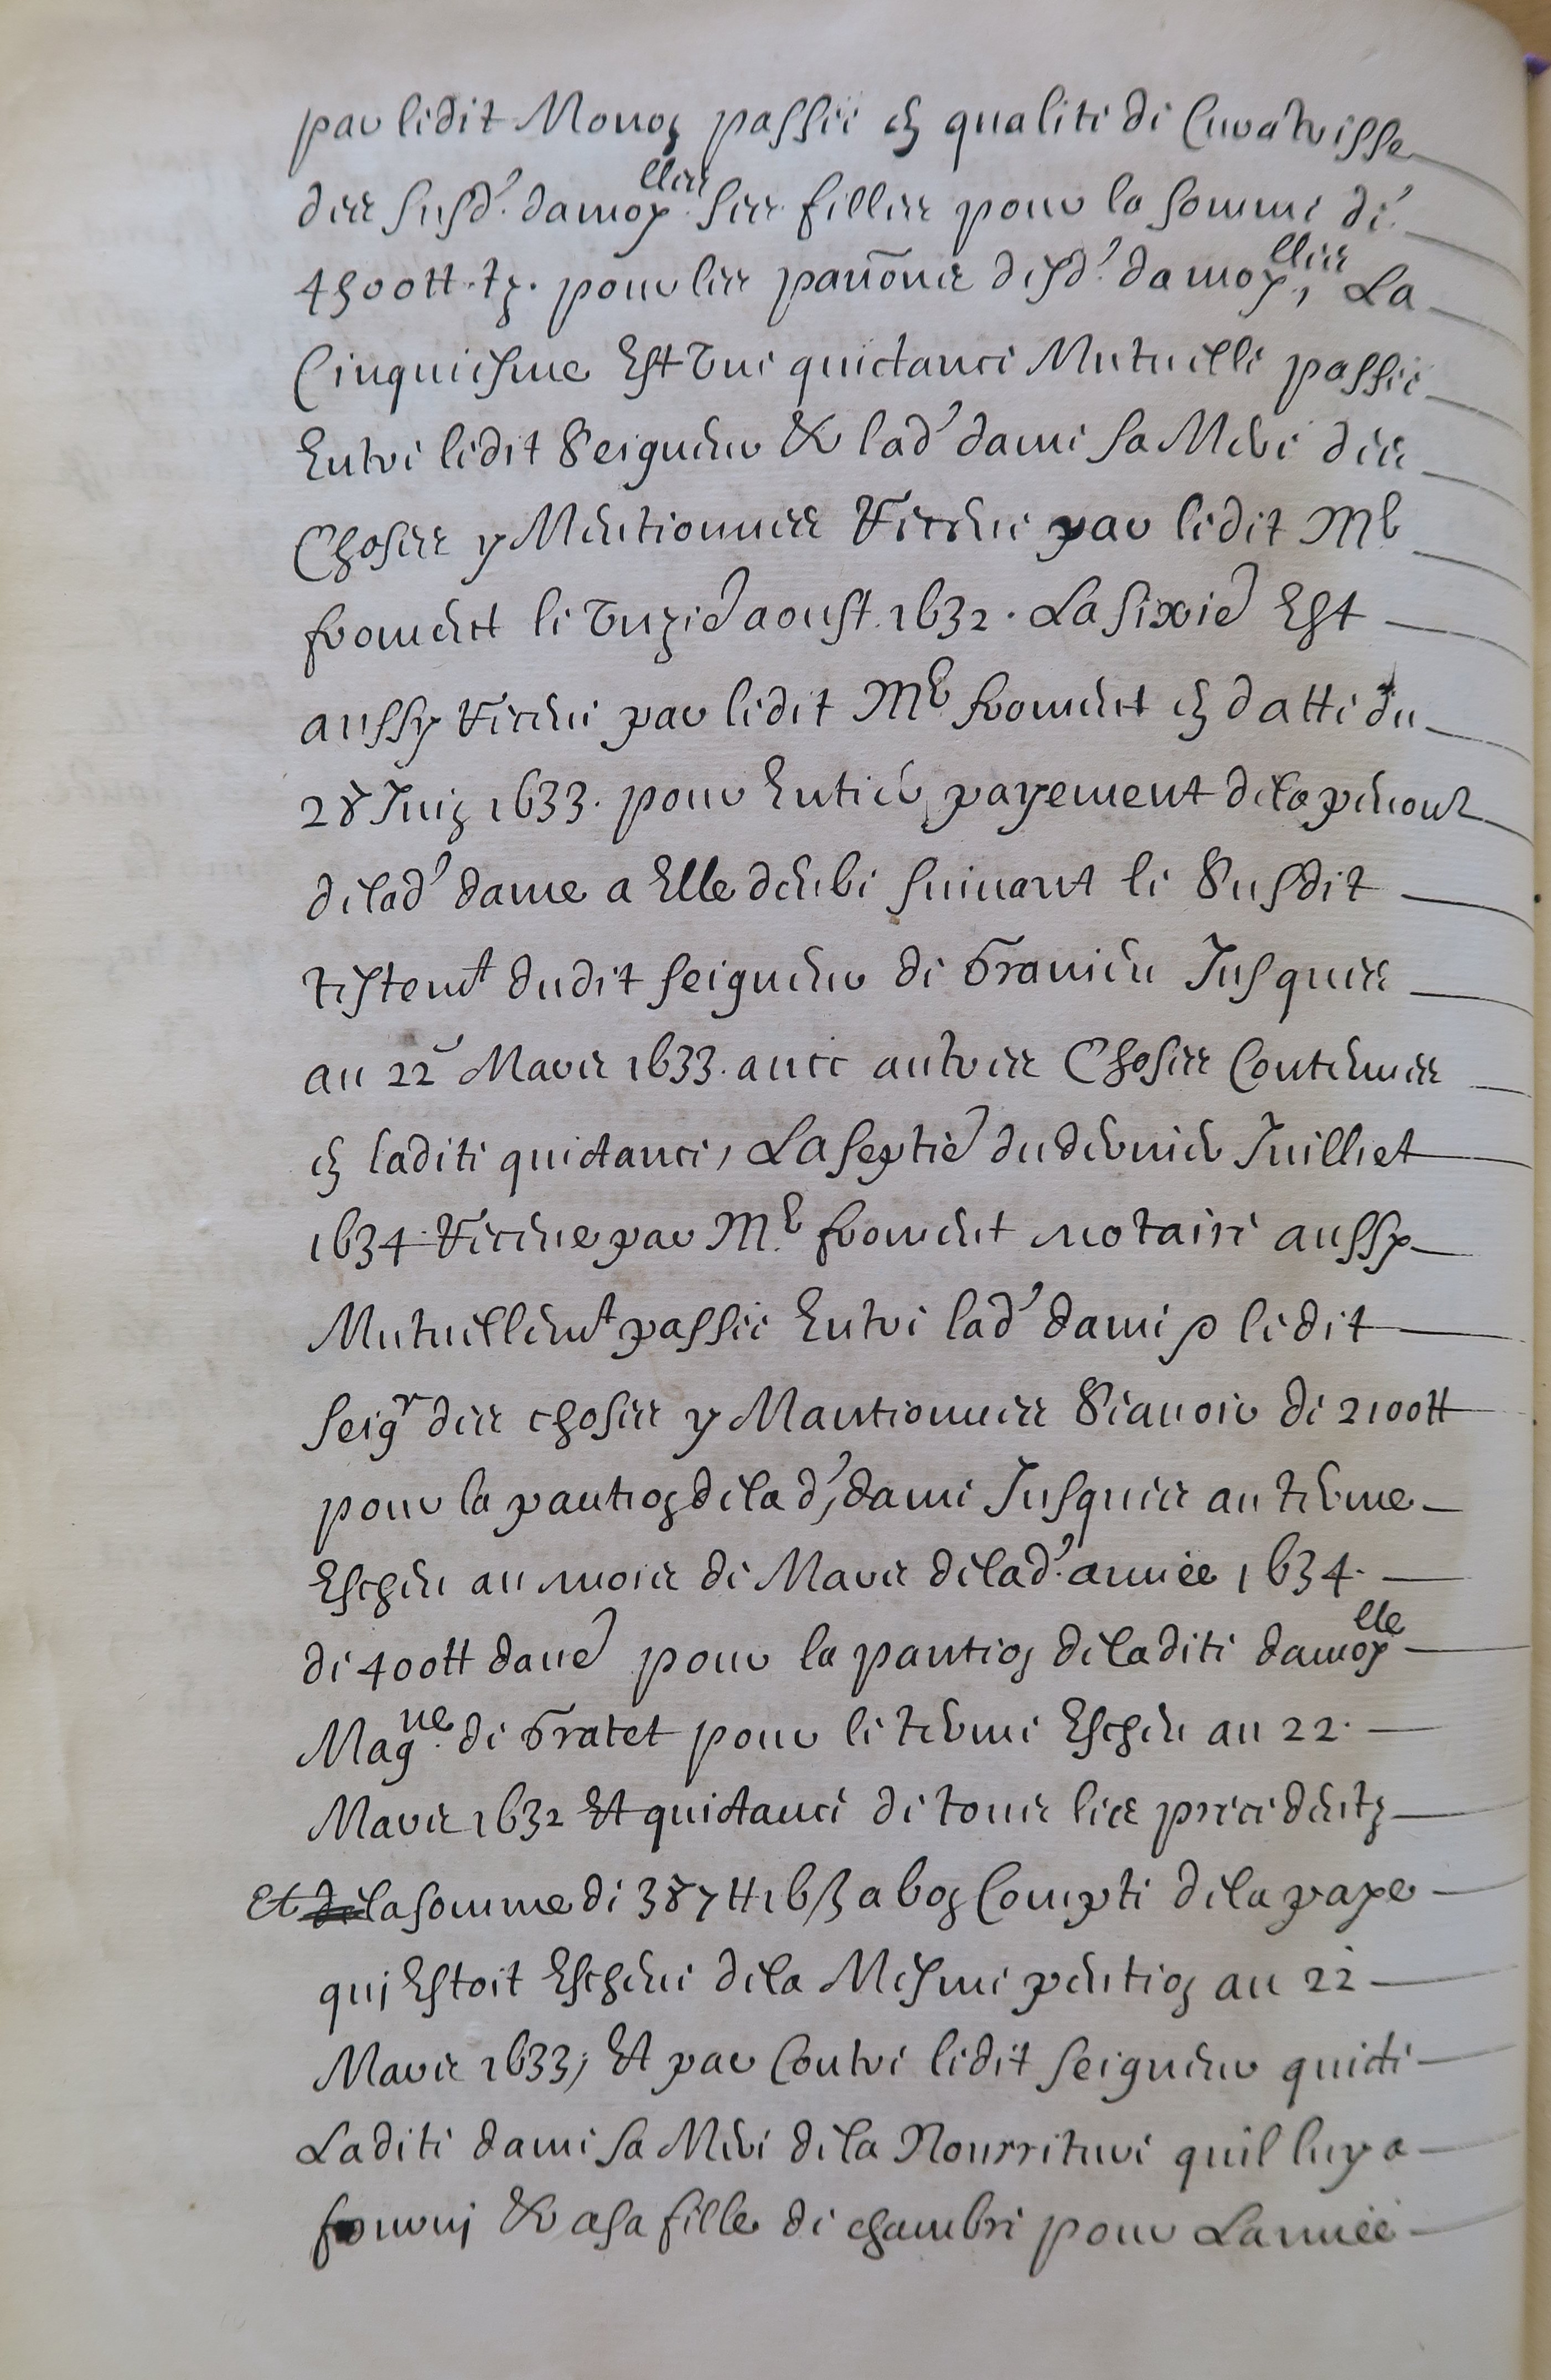 par ledit Monoz passée en qualité de Curatrisse
des susd' damoy.lles ses filles pour la somme de
4500tt. tz. pour les pan͠ons desd' damoy.lles, La
Cinquiesme Est Une quictance Mutuelle passée
Entre ledit Seigneur & lad' dame sa Mere des
Choses y Mentionnées Receue par ledit Me
froment le Unzie aoust 1632. La sixie Est
aussy Receue par ledit Me froment en datte du
28 Juin 1633. pour Entier payement de la penōn
de lad' dame a Elle deube suivant le Susdit
testemt dudit seigneur de Granieu Jusques
au 22 Mars 1633. avec autres Choses Contenues
en ladite quictance, La septie du dernier Juilliet
1634 Receue par Me froment notaire aussy
Mutuellemt passée Entre lad' dame & ledit
seigr des choses y Mantionnées Scavoir de 2100tt
pour la pantion de lad', dame Jusques au terme
Escheu au mois de Mars de lad' année 1634.
de 400tt dune pour la pantion de ladite damoylle
Magne. de Gratet pour le terme Escheu au 22.
Mars 1632 Et quictance de tous les precedentz
Et de la somme de 387tt 16ß a bon Compte de la paye
qui Estoit Escheue de la Mesme pention au 22
Mars 1633; Et par Contre ledit seigneur quicte
Ladite dame sa Mere de la Nourriture quil luy a
fourni & a sa fille de chambre pour Lannée